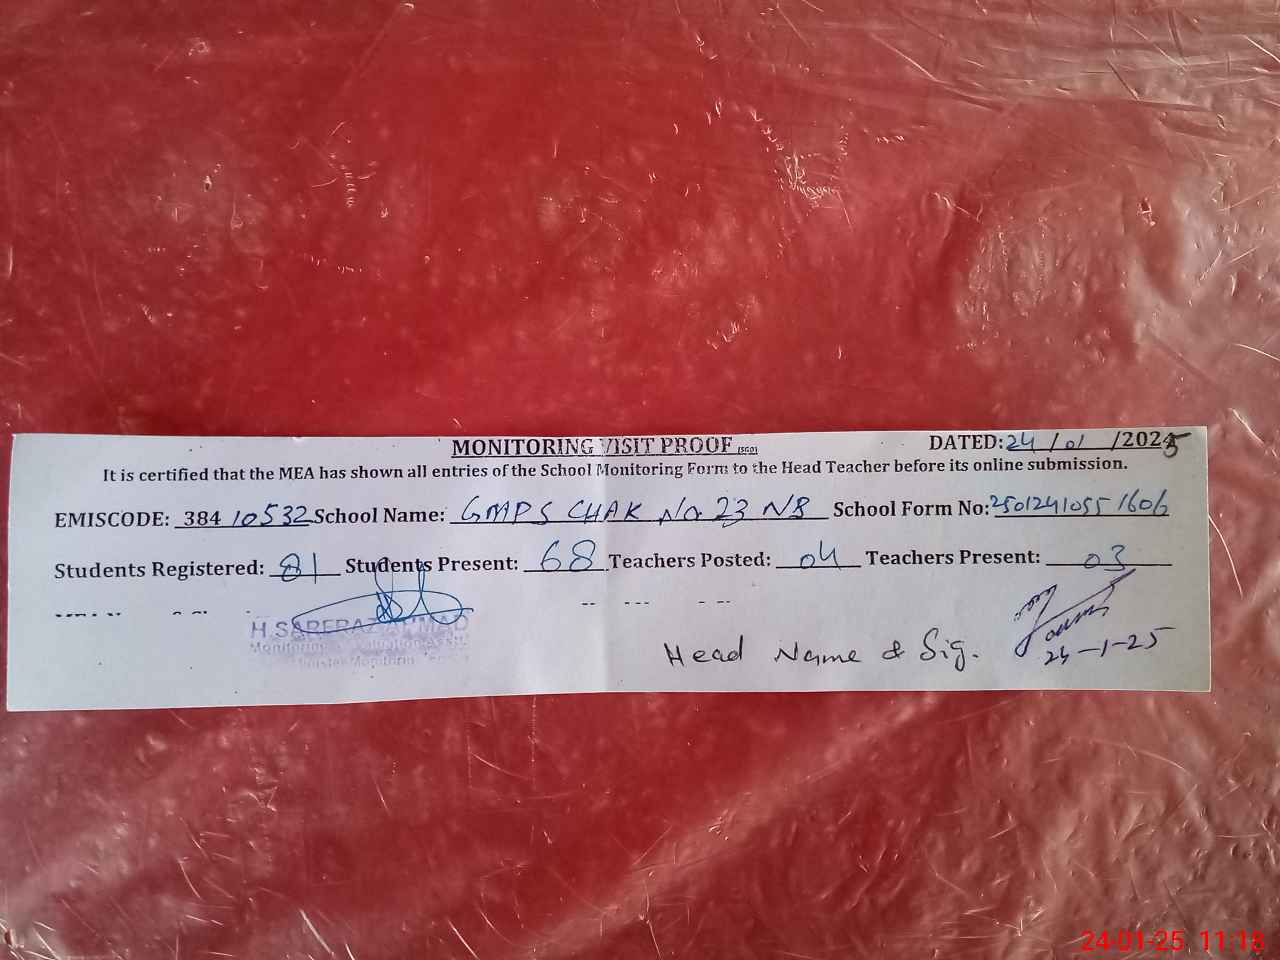 MONITORING VISIT PROOF (SGD) DATED: 24/01/2025
It is certified that the MEA has shown all entries of the School Monitoring Form to the Head Teacher before its online submission.
EMISCODE: 384 10532 School Name: GMPS CHAK No 23 NB School Form No: 2501241055 1606
Students Registered: 81 Students Present: 68 Teachers Posted: 04 Teachers Present: 03
H.SARFRAZ AHMAD
Monitoring
Head Name & Sig.
24-1-25
24-01-25 11:18